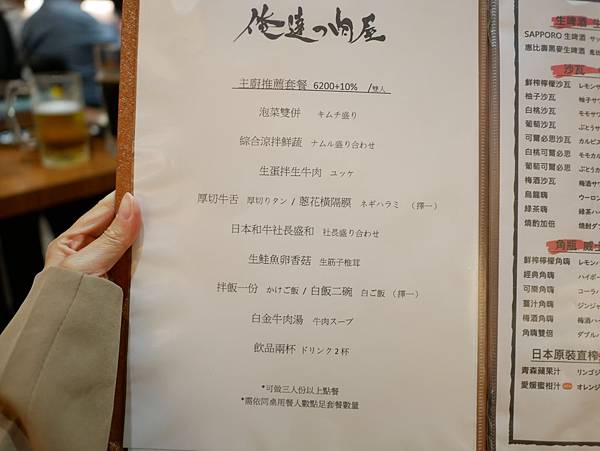 俺達の肉屋
主廚推薦套餐 6200+10% /雙人
泡菜雙併 キムチ盛り
綜合涼拌鮮蔬 ナムル盛り合わせ
生蛋拌生牛肉 ユッケ
厚切牛舌 厚切りタン / 蔥花橫隔膜 ネギハラミ (擇一)
日本和牛社長盛和 社長盛り合わせ
生鮭魚卵香菇 生筋子椎茸
拌飯一份 かけご飯 / 白飯二碗 白ご飯 (擇一)
白金牛肉湯 牛肉スープ
飲品兩杯 ドリンク2杯
*可做三人份以上點餐
*需依同桌用餐人數點足套餐數量
生啤酒 生
SAPPORO 生啤酒 サッ
惠比壽黑麥生啤酒
沙瓦
鮮榨檸檬沙瓦 レモンサ
柚子沙瓦 柚子サワ
白桃沙瓦 モモサワ
葡萄沙瓦 ぶどうサ
可爾必思沙瓦 カルピス
白桃可爾必思 モモカル
葡萄可爾必思 ぶどうカ
梅酒沙瓦 梅酒サワ
烏龍嗨 ウーロン
綠茶嗨 緑茶ハイ
燒酌加倍 焼酎ダブ
角瓶 威士
鮮榨檸檬角嗨 レモンハ
經典角嗨 ハイボー
可樂角嗨 コーラハ
薑汁角嗨 ジンジャ
梅酒角嗨 梅酒ハイ
角嗨雙倍 ダブルハ
日本原裝直榨
青森蘋果汁 リンゴジ
愛媛蜜柑汁 オレンジ